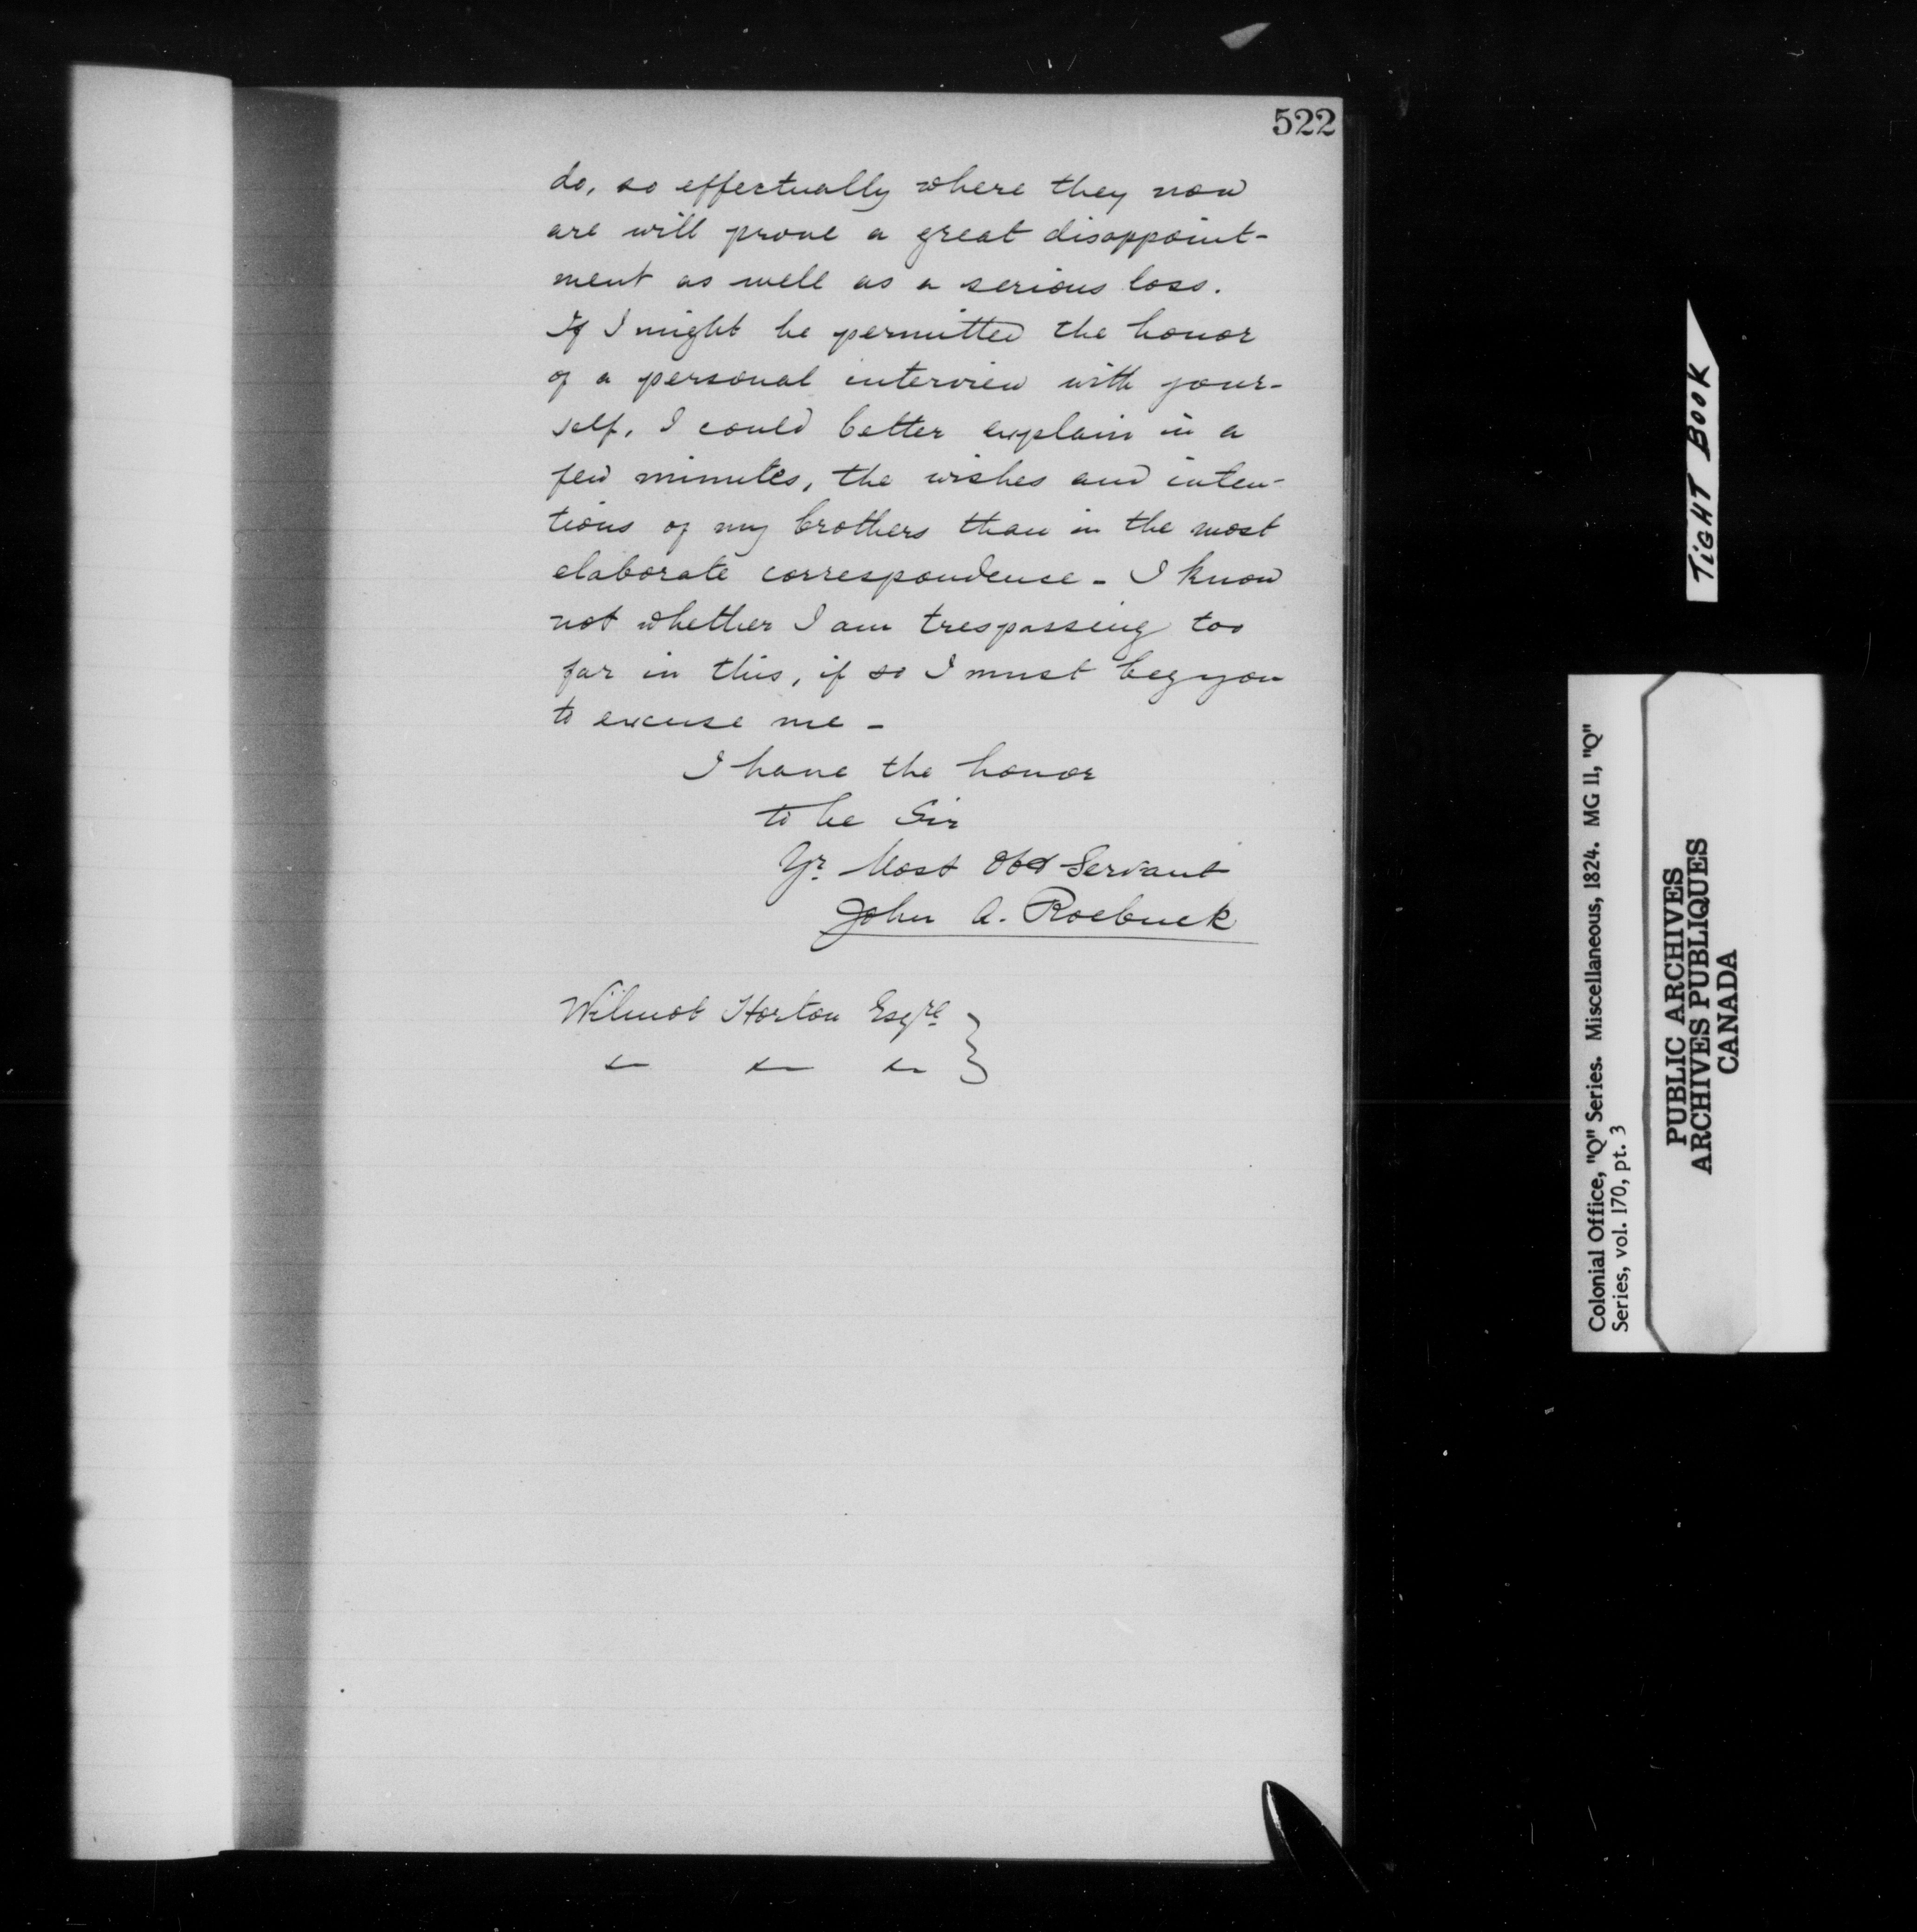 522
do, so effectually where they now
are will prove a great disappoint-
ment as well as a serious loss.
If I might be permitted the honor
of a personal interview with your-
self, I could better explain in a
few minutes, the wishes and inten-
tions of my brothers than in the most
elaborate correspondence - I know
not whether I am trespassing too
far in this, if so I must beg you
to excuse me -
I have the honor
to be Sir
Yr. Most Obd Servant
John A. Roebuck
Wilmot Horton Esqre
TIGHT BOOK
Colonial Office, "Q" Series. Miscellaneous, 1824. MG 11, "Q"
Series, vol. 170, pt. 3
PUBLIC ARCHIVES
ARCHIVES PUBLIQUES
CANADA